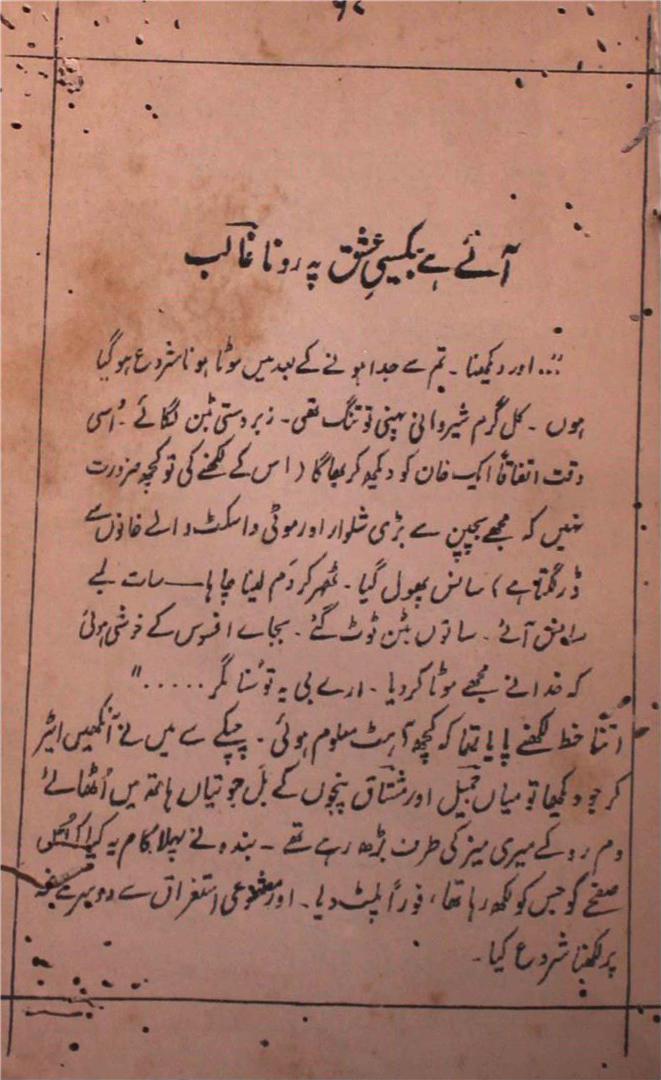 آئے ہے بیکسیِ عشق پہ رونا غالب
"... اور دیکھنا۔ تم سے جدا ہونے کے بعد میں موٹا ہونا شروع ہوگیا
ہوں۔ کل گرم شیروانی پہنی تو تنگ تھی۔ زبردستی بٹن لگائے۔ اُسی
وقت اتفاقاً ایک خان کو دیکھ کر بھاگا (اس کے لکھنے کی تو کچھ ضرورت
نہیں کہ مجھے بچپن سے بڑی شلوار اور موٹی واسکٹ والے خانوں سے
ڈر لگتا ہے) سانس پھول گیا۔ ٹھہر کر دَم لینا چاہا ــــ سات لمبے
سانس آئے۔ ساتوں بٹن ٹوٹ گئے۔ بجائے افسوس کے خوشی ہوئی
کہ خدا نے مجھے موٹا کردیا۔ ارے بی یہ تو سُنا مگر ....."
اتنا خط لکھنے پایا تھا کہ کچھ آہٹ معلوم ہوئی۔ چپکے سے میں نے آنکھیں اٹھا
کر جو دیکھا تو میاں جمیل اور مشتاق پنجوں کے بَل جوتیاں ہاتھ میں اُٹھائے
دم روکے میری میز کی طرف بڑھ رہے تھے۔ بندہ نے پہلا کام یہ کیا کہ اُس
صفحے کو جس کو لکھ رہا تھا، فوراً پلٹ دیا۔ اور مصنوعی استغراق سے دوسرے صفحہ
پر لکھنا شروع کیا۔